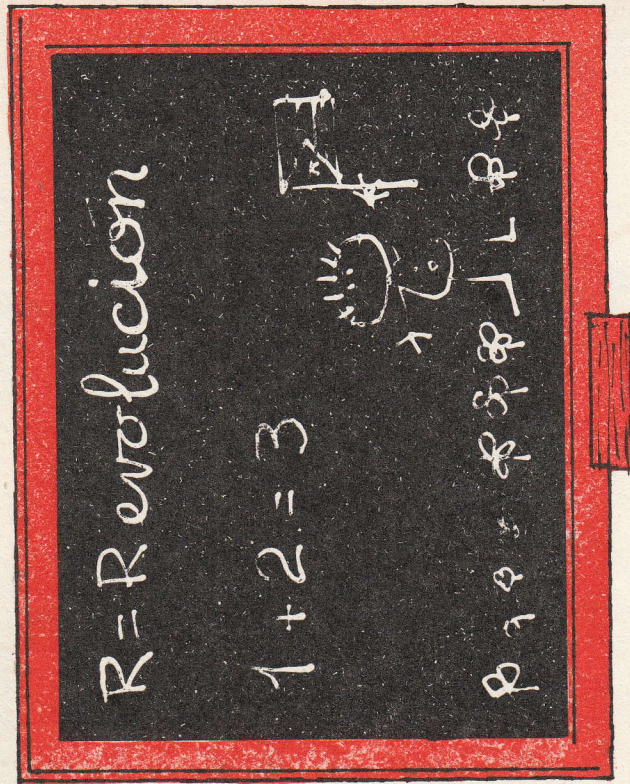 R = Revolución
1 + 2 = 3